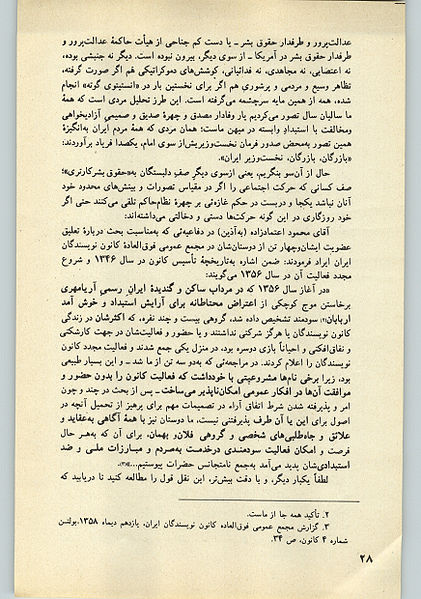 عدالت‌پرور و طرفدار حقوق بشر ـ یا دست کم جناحی از هیأت حاکمهٔ عدالت‌پرور و
طرفدار حقوق بشر در آمریکا ـ از سوی دیگر، بیرون نبوده است. دیگر نه جنبشی بوده،
نه اعتصابی، نه مجاهدی، نه فدائیانی، کوشش‌های دموکراتیکی هم اگر صورت گرفته،
تظاهر وسیع و مردمی و پرشوری هم اگر برای نخستین بار در «انستیتوی گوته» انجام
شده، همه از همین مایه سرچشمه می‌گرفته است. این طرز تحلیل مردی است که همهٔ
ما سالیان سال تصور می‌کردیم یار وفادار مصدق و چهرهٔ صدیق و صمیمی آزادیخواهی
ومخالفت با استبداد وابسته در میهن ماست؛ همان مردی که همهٔ مردم ایران به‌انگیزهٔ
همین تصور به‌محض صدور فرمان نخست‌وزیریش‌از سوی امام، یکصدا فریاد برآوردند:
«بازرگان، بازرگان، نخست‌وزیر ایران».
حال از آن‌سو بنگریم، یعنی ازسوی دیگر صف دلبستگان به‌«حقوق بشرکارتری»؛
صف کسانی که حرکت اجتماعی را اگر در مقیاس تصورات و بینش‌های محدود خود
آنان نباشد یکجا و دربست در حکم غازه‌ئی بر چهرهٔ نظام‌حاکم تلقی می‌کنند حتی اگر
خود روزگاری در این گونه حرکت‌ها دستی و دخالتی می‌داشته‌اند:
آقای محمود اعتمادزاده (به‌آذین) در دفاعیه‌ئی که‌به‌مناسبت بحث دربارهٔ تعلیق
عضویت ایشان‌وچهار تن از دوستان‌شان در مجمع عمومی فوق‌العادهٔ کانون نویسندگان
ایران ایراد فرمودند: ضمن اشاره به‌تاریخچهٔ تأسیس کانون در سال ۱۳۴۶ و شروع
مجدد فعالیت آن در سال ۱۳۵۶ می‌گویند:
«در آغاز سال ۱۳۵۶ که در مرداب ساکن و گندیدهٔ ایران رسمی آریامهری
برخاستن موج کوچکی از اعتراض محتاطانه برای آرایش استبداد و خوش آمد
اربابان(۲) سودمند تشخیص داده شد، گروهی بیست و چند نفره، که اکثرشان در زندگی
کانون نویسندگان یا هرگز شرکتی نداشتند و یا حضور و فعالیت‌شان در جهت کارشکنی
و نفاق‌افکنی و احیاناً بازی دوسره بود، در منزل یکی جمع شدند و فعالیت مجدد کانون
نویسندگان را اعلام کردند. در مراجعه‌ئی که به‌دو سه تن از ما شد ـ و این بسیار طبیعی
بود، زیرا برخی نام‌ها مشروعیتی با خودداشت که فعالیت کانون را بدون حضور و
موافقت آن‌ها در افکار عمومی امکان‌ناپذیر می‌ساخت ـ پس از بحث در چند و چون
امر و پذیرفته شدن شرط اتفاق آراء در تصمیمات مهم برای پرهیز از تحمیل آنچه در
اصول برای این یا آن طرف پذیرفتنی نیست، ما دوستان نیز با همهٔ آگاهی به‌عقاید و
علائق و جاه‌طلبی‌های شخصی و گروهی فلان‌و بهمان، برای آن که به‌هر حال
فرصت و امکان فعالیت سودمندی درخدمت به‌مردم و مبارزات ملی و ضد
استبدادی‌شان پدید می‌آمد به‌جمع نامتجانس حضرات پیوستیم...»(۳).
لطفاً یکبار دیگر، و با دقت بیش‌تر، این نقل قول را مطالعه کنید تا دریابید که
۲. تأکید همه جا از ماست.
۳. گزارش مجمع عمومی فوق‌العاده کانون نویسندگان ایران، یازدهم دیماه ۱۳۵۸. بولتن
شماره ۴ کانون، ص ۳۴.
۲۸